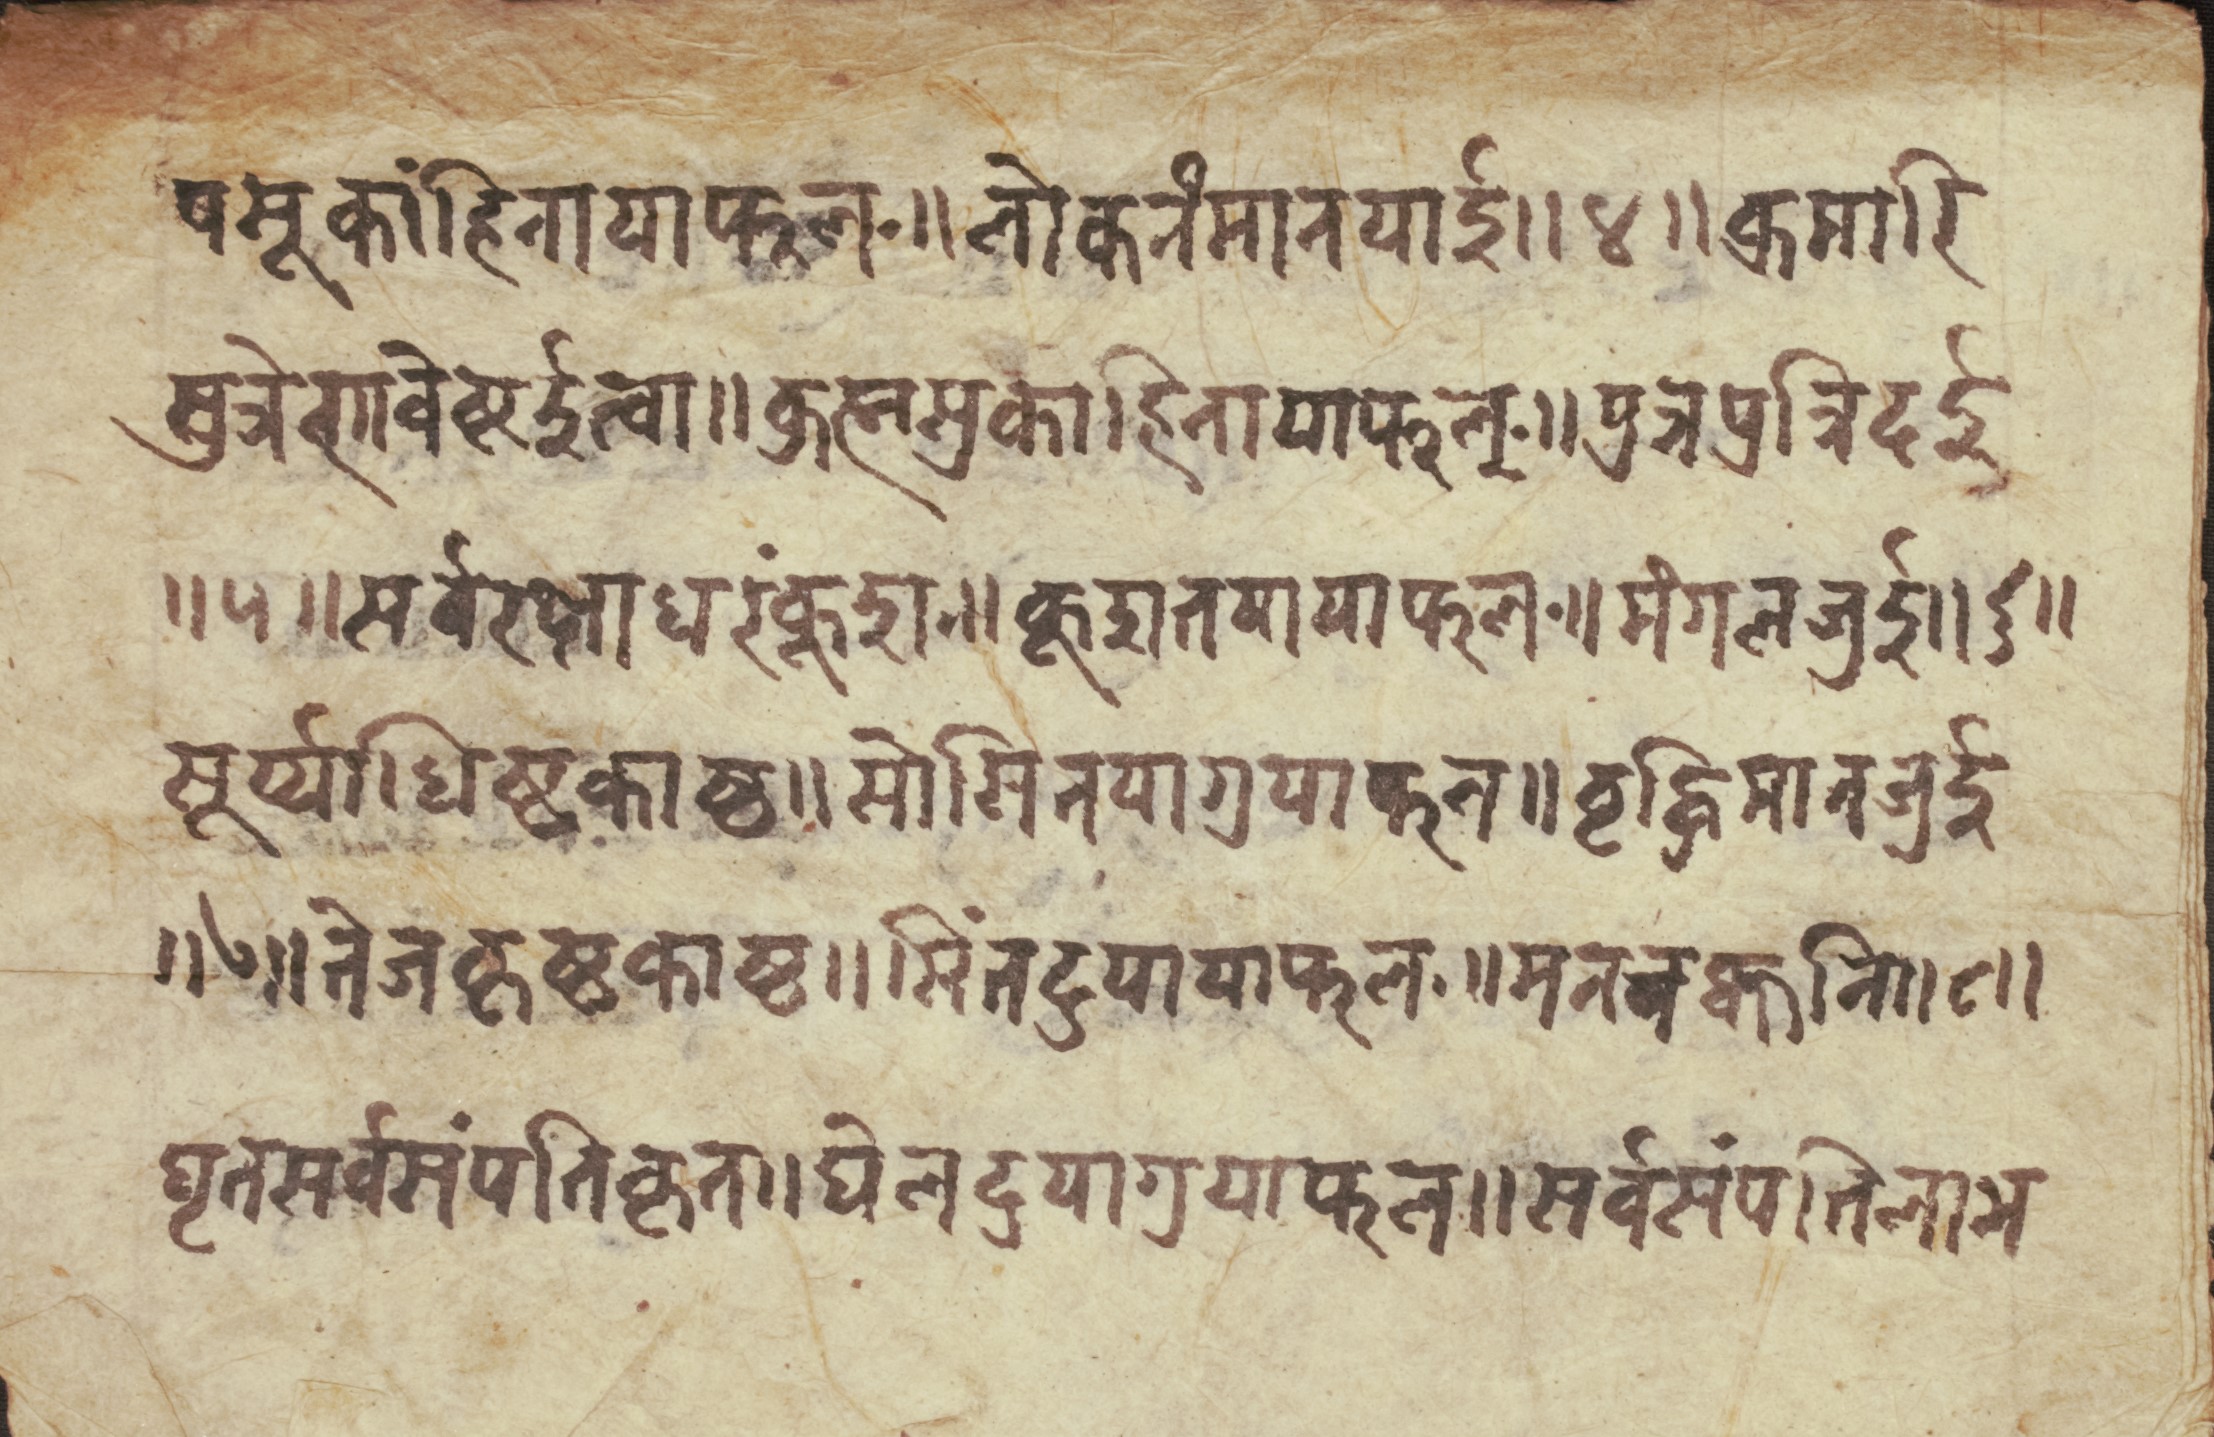 षमूकांहिनायाफुल॰॥लोकनंमानयाई॥४॥कुमारि
सुत्रेणावेष्टईत्वा॥कुत्नमुकाहिनायाफुल॰॥पुत्रपुत्रिदई
॥५॥सर्वरक्षाधरंकूश॰॥कूशतयायाफल॰॥मंगलजुई॥६॥
सूर्य्याधिष्टकाष्ठ॥सोसिनयागुयाफल॥वृद्धिमानजुई
॥७॥तेजकृष्टकाष्ठ॥सिंतदुयायाफल॰॥मननक्वनि॥८॥
घृतसर्वसंपतिकृत॥घेलदुयागुयाफल॥सर्वसंपतिलाभ